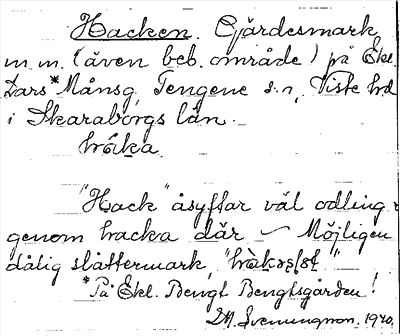 Hacken. Gärdesmark
m.m. (även beb. område) på Ekel.
Lars* Månsg, Tengene s:n, Viste hd
i Skaraborgs län.
håka
"Hack" åsyftar väl odling
genom hacka där – Möjligen
dålig slåttermark,
*På Ekel. Bengt Bengtsgården!
Svenningson. 1940.